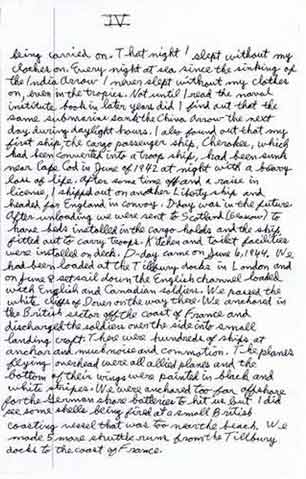 IV
being carried on. That night I slept without my
clothes on. Every night at sea since the sinking of
the India Arrow I never slept without my clothes
on, even in the tropics. Not until I read the naval
institute book in later years did I find out that the
same submarine sank the China Arrow the next
day during daylight hours. I also found out that my
first ship, the cargo passenger ship, Cherokee, which
had been converted into a troop ship, had been sunk
near Cape Cod in June of 1942 at night with a heavy
loss of life. After some time off and a raise in
license, I shipped out on another Liberty ship and
headed for England in convoy. D-day was in the future.
After unloading we were sent to Scotland (Glasgow) to
have beds installed in the cargo holds and the ship
fitted out to carry troops. Kitchen and toilet facilities
were installed on deck. D-day came on June 6, 1944. We
had been loaded at the Tilbury docks in London and
on June 8 set sail down the English channel loaded
with English and Canadian soldiers. We passed the
white cliffs of Dover on the way there. We anchored in
the British sector off the coast of France and
discharged the soldiers over the side into small
landing craft. There were hundreds of ships at
anchor and much noise and commotion. The planes
flying overhead were all allied planes and the
bottom of their wings were painted in black and
white stripes. We were anchored too far offshore
for the German shore batteries to hit us but I did
see some shells being fired at a small British
coasting vessel that was too near the beach. We
made 5 more shuttle runs from the Tillbury
docks to the coast of France.